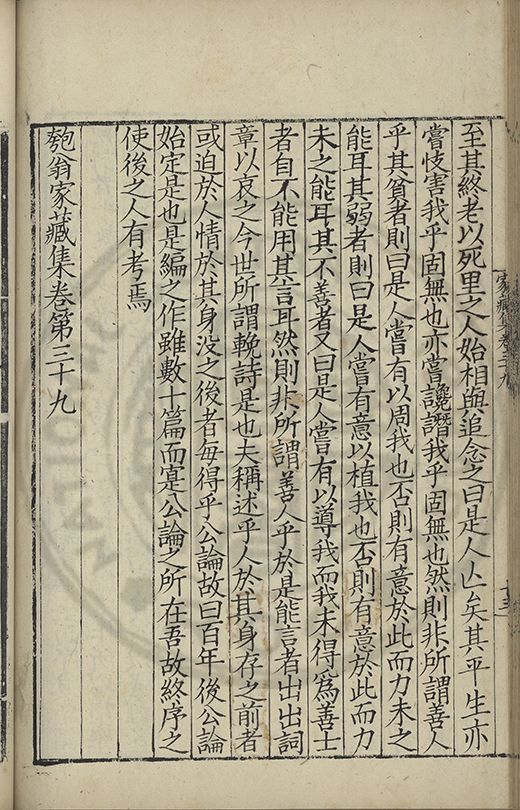 至其終老以死里之人始相與追念之曰是人亡矣其平生亦
嘗忮害我乎固無也亦嘗讒譖我乎固無也然則非所謂善人
乎其貧者則曰是人嘗有以周我也否則有意於此而力未之
能耳其弱者則曰是人嘗有意以植我也否則有意於此而力
未之能耳其不善者又曰是人嘗有以導我而我未得爲善士
者自不能用其言耳然則非所謂善人乎於是能言者出出詞
章以哀之今世所謂輓詩是也夫稱述乎人於其身存之前者
或迫於人情於其身没之後者每得乎公論故曰百年後公論
始定是也是編之作雖數十篇而寔公論之所在吾故終序之
使後之人有考焉
匏翁家藏集卷第三十九